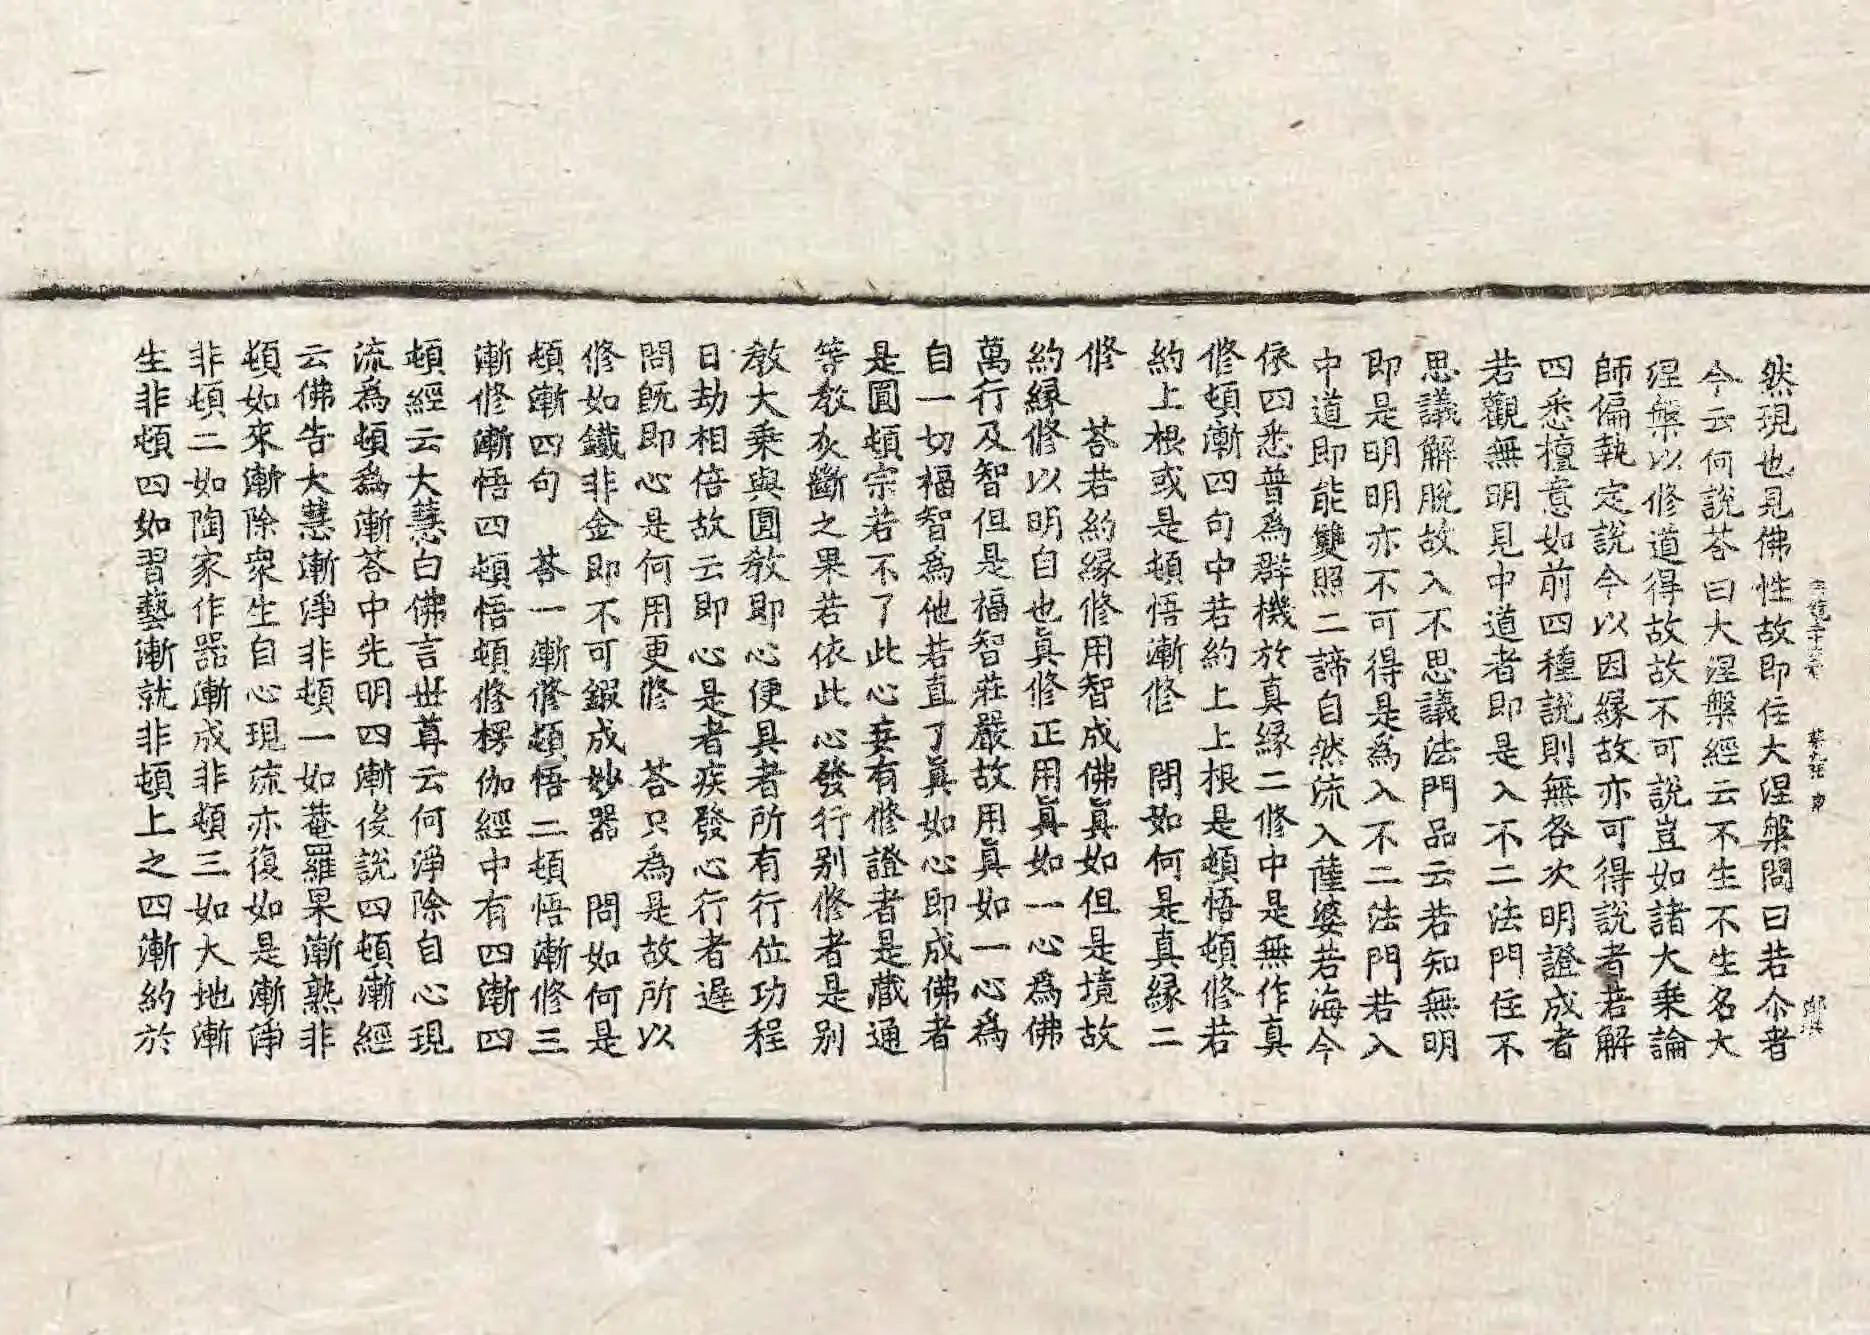 宗鏡三十六卷 第九張 鄭珙
然現也見佛性故即住大涅槃問曰若尒者
今云何說荅曰大涅槃經云不生不生名大
涅槃以修道得故故不可說豈如諸大乘論
師偏執定說今以因緣故亦可得說者若解
四悉檀意如前四種說則無各次明證成者
若觀無明見中道者即是入不二法門住不
思議解脫故入不思議法門品云若知無明
即是明明亦不可得是為入不二法門若入
中道即能雙照二諦自然流入薩婆若海今
依四悉普為群機於真緣二修中是無作真
修頓漸四句中若約上上根是頓悟頓修若
約上根或是頓悟漸修　問如何是真緣二
修　荅若約緣修用智成佛真如但是境故
約緣修以明自也真修正用真如一心為佛
萬行及智但是福智莊嚴故用真如一心為
自一切福智為他若直了真如心即成佛者
是圓頓宗若不了此心妄有修證者是藏通
等教灰斷之果若依此心發行別修者是別
教大乘與圓教即心便具者所有行位功程
日劫相倍故云即心是者疾發心行者遲
問既即心是何用更修　荅只為是故所以
修如鐵非金即不可鍛成妙器　問如何是
頓漸四句　荅一漸修頓悟二頓悟漸修三
漸修漸悟四頓悟頓修楞伽經中有四漸四
頓經云大慧白佛言世尊云何淨除自心現
流為頓為漸荅中先明四漸後說四頓漸經
云佛告大慧漸淨非頓一如菴羅果漸熟非
頓如來漸除衆生自心現流亦復如是漸淨
非頓二如陶家作器漸成非頓三如大地漸
生非頓四如習藝漸就非頓上之四漸約於